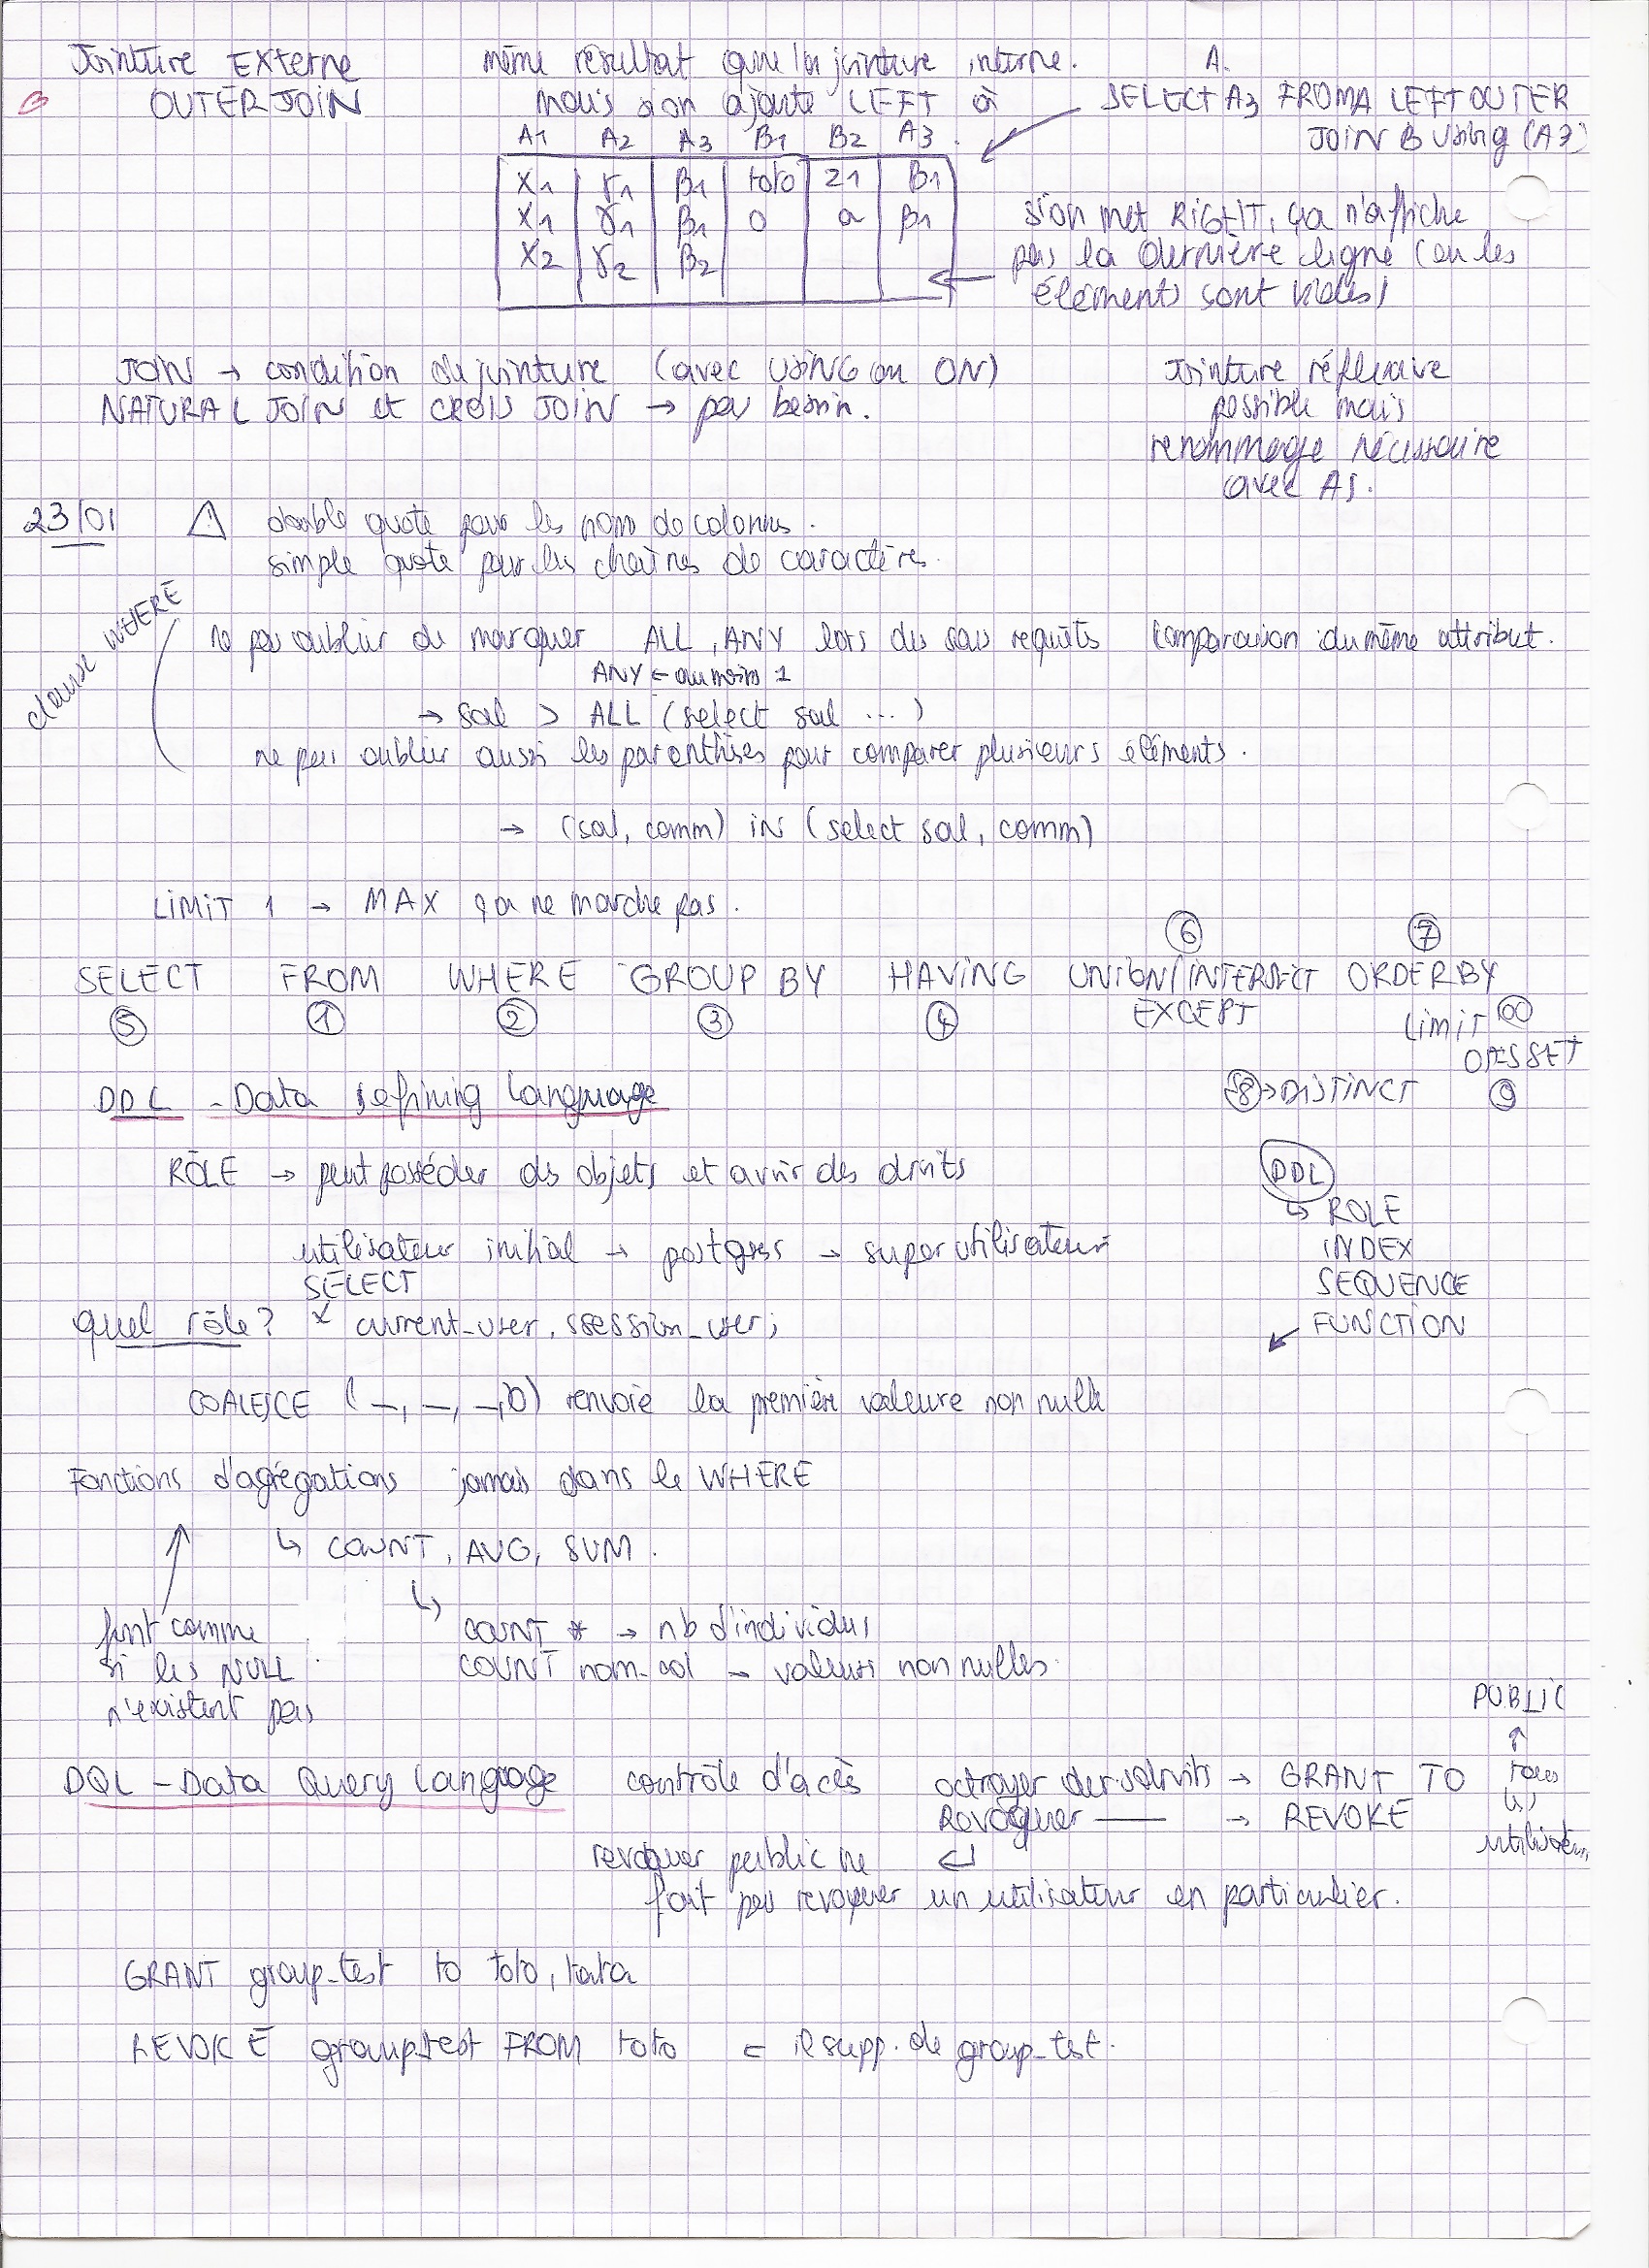 Jointure Externe
OUTER JOIN
même résultat que la jointure interne.
mais si on ajoute LEFT à
A.
SELECT A3 FROM A LEFT OUTER
JOIN B using (A3)
A1 A2 A3 B1 B2 A3
X1 γ1 β1 toto 21 B1
X1 γ1 β1 0 a β1
X2 γ2 β2
si on met RIGHT, ça n'affiche
pas la dernière ligne (ou les
éléments sont vides)
JOIN → condition de jointure (avec USING ou ON)
NATURAL JOIN et CROSS JOIN → pas besoin.
Jointure réflexive
possible mais
renommage nécessaire
avec AS.
23/01
double quote pour les nom de colonnes.
simple quote pour les chaînes de caractères.
clause WHERE
ne pas oublier de marquer ALL, ANY lors des sous requêts comparaison du même attribut.
ANY ← au moins 1
→ sal > ALL (select sal ...)
ne pas oublier aussi les parenthèses pour comparer plusieurs éléments.
→ (sal, comm) IN (select sal, comm)
LIMIT 1 → MAX ça ne marche pas.
⑥ ⑦
SELECT FROM WHERE GROUP BY HAVING UNION/INTERSECT ORDER BY
⑤ ① ② ③ ④ EXCEPT
LIMIT
OFFSET
⑧ → DISTINCT ⑨
DDL - Data Defining Language
RÔLE → peut posséder des objets et avoir des droits
utilisateur initial → postgres → super utilisateur
SELECT
Quel rôle? current_user, session_user;
DDL
↳ ROLE
INDEX
SEQUENCE
FUNCTION
COALESCE (—, —, —, 0) renvoie la première valeure non nulle
Fonctions d'agrégations jamais dans le WHERE
↳ COUNT, AVG, SUM.
font comme
si les NULL
n'existent pas
↳ COUNT * → nb d'individus
COUNT nom_col → valeurs non nulles.
PUBLIC
↑
DQL - Data Query Language contrôle d'accès octroyer des droits → GRANT TO
Révoquer —— → REVOKE
utilisateurs
revoquer public ne ↵
fait pas revoquer un utilisateur en particulier.
GRANT group_test to toto, tata
REVOKE group_test FROM toto = il supp. de group_test.